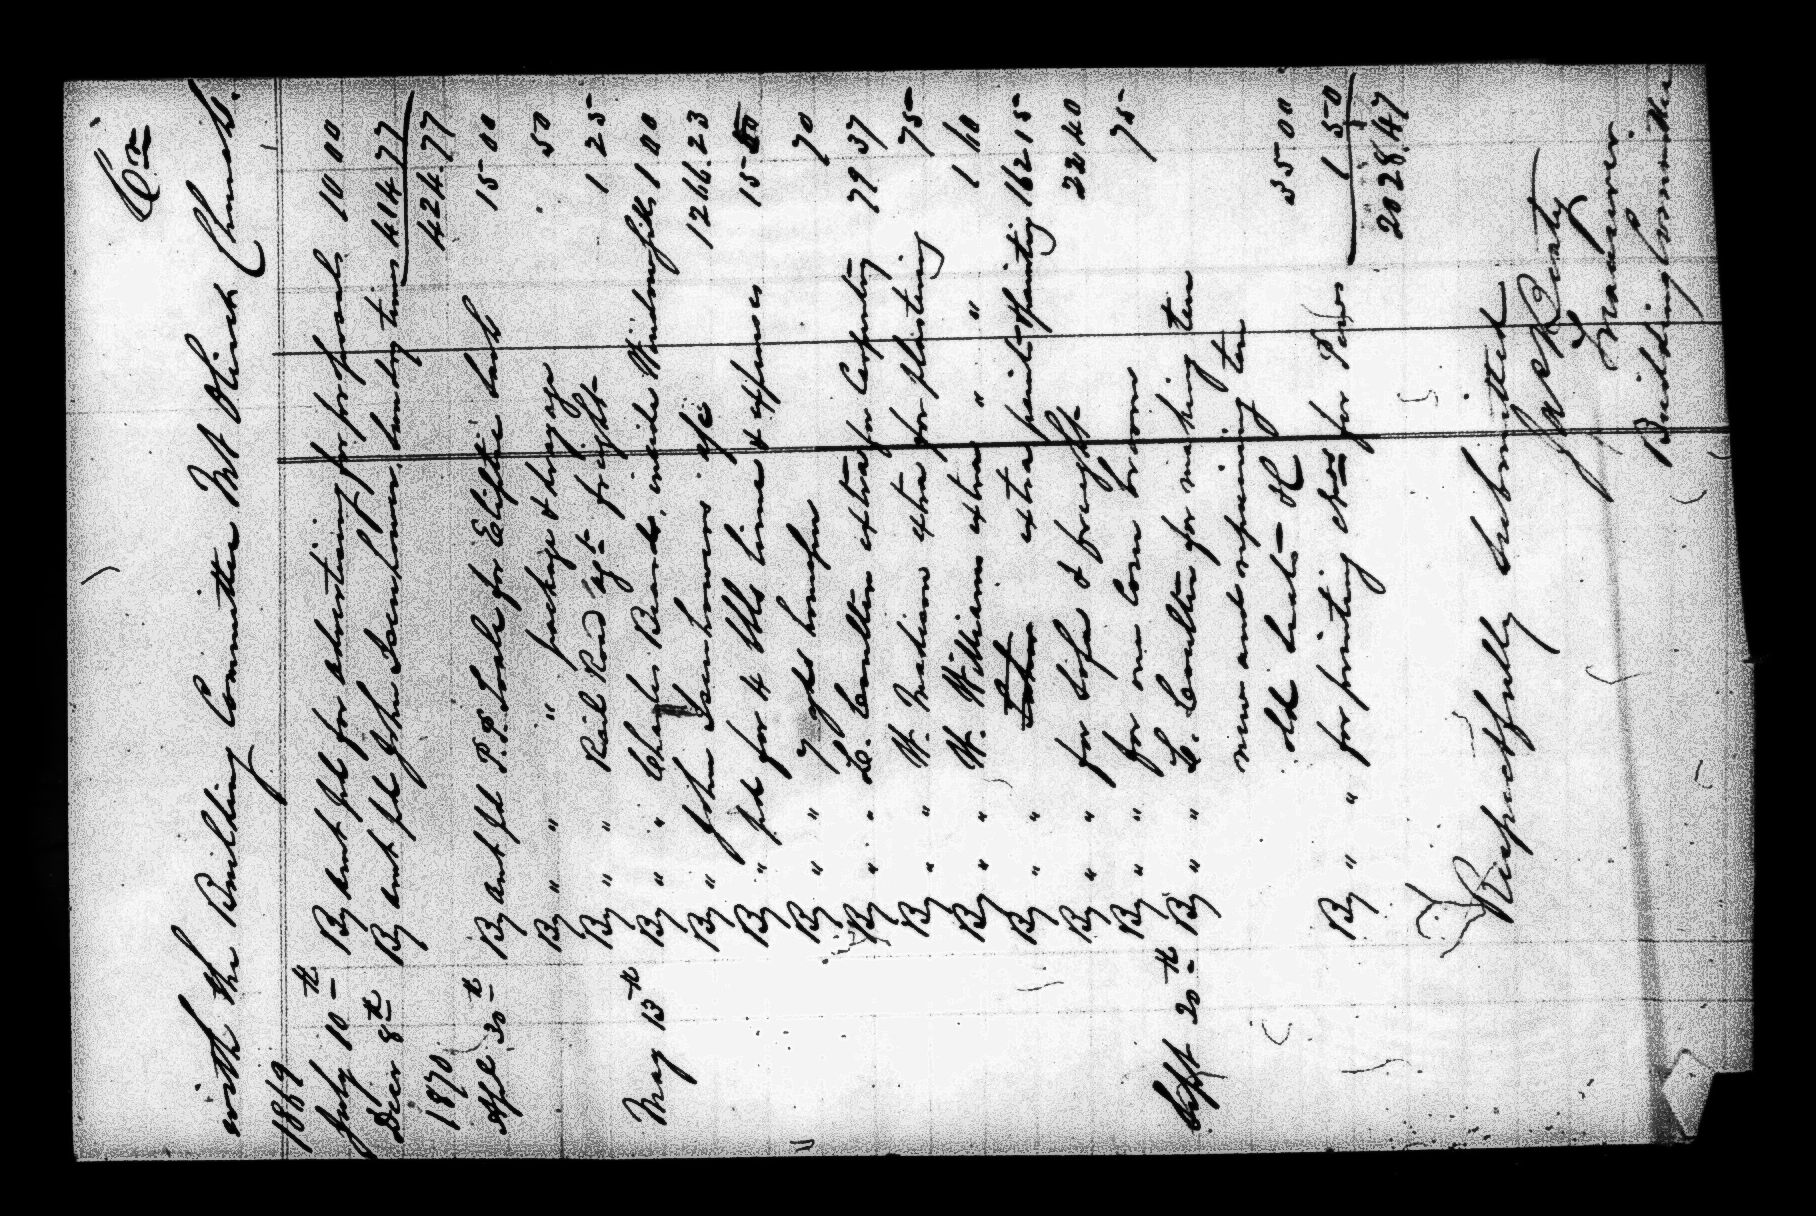 Cr
with the Building Committee Mt Olivet Church.
1869
July 10th By amt pd for advertising for proposals 10 00
Decr 8th By amt pd John Isenhower sundry times 414 77
424.77
1870
Apl 30th By amt pd P.P. Toale for Eliptic Sash 15 00
By " " package & drayage 50
By " " Rail Road agt freight 1 25
May 13th By " " Charles Beard, inside 1 00
By " John Isenhowers a/c 1266.23
By " pd for 4 bbls lime & expenses 15 50
By " " 7 gls 70
By " " C. Coulter extra for Carpentry 79 37
By " " W. Madison extra for plastering 75
By " " W. Williams extra " " 1 60
By " " extra paint & Painting 162 15
By " for Sofa & freight 22 40
By " " for one Corn broom 75
Sept 20th By " " C. Coulter for making ten
new and repairing ten
old seats 35.00
By " " for printing for Pews 1 50
2028.47
Respectfully Submitted
Treasurer
Building Committee